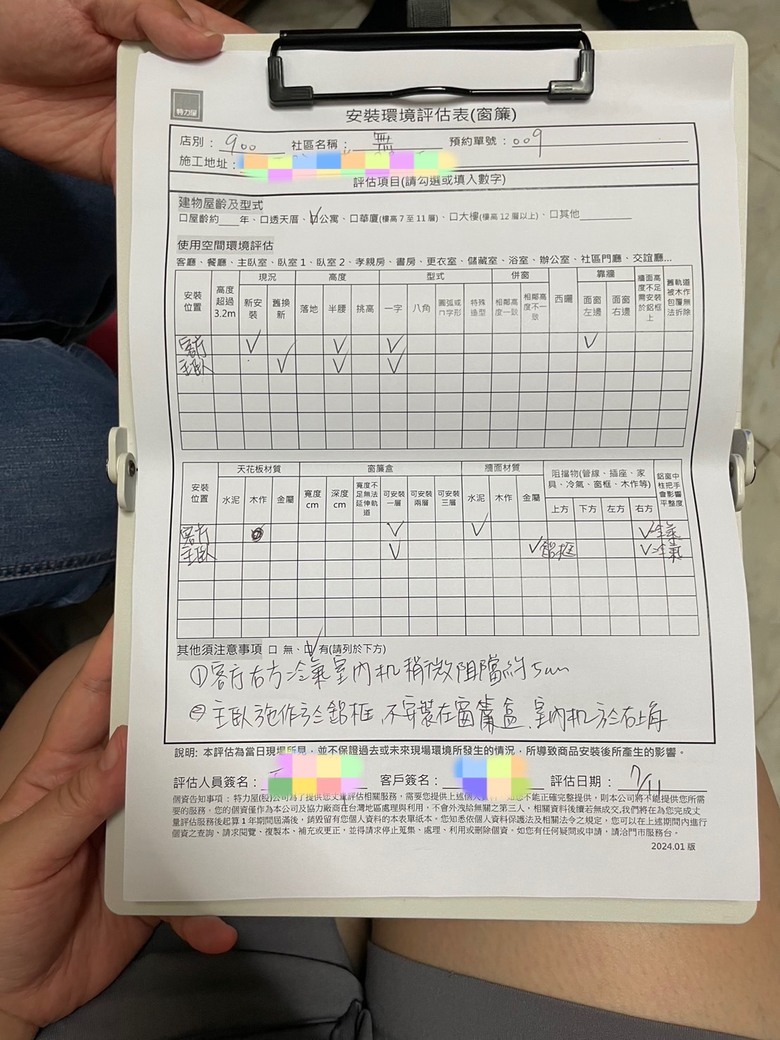 特力屋
安裝環境評估表(窗簾)
店別：900 社區名稱：無 預約單號：009
施工地址：
評估項目(請勾選或填入數字)
建物屋齡及型式
口屋齡約＿＿年、口透天厝、☑公寓、口華廈(樓高 7 至 11 層)、口大樓(樓高 12 層以上)、口其他＿＿＿＿
使用空間環境評估
客厅、餐厅、主臥室、臥室 1、臥室 2、孝親房、書房、更衣室、儲藏室、浴室、辦公室、社區門廳、交誼厅...
安裝位置 高度超過3.2m 現況 高度 型式 併窗 西曬 靠牆 牆面高度不足需安裝於鋁框上 舊軌道被木作包覆無法拆除
新安裝 舊換新 落地 半腰 挑高 一字 八角 圓弧或ㄇ字形 特殊造型 相鄰高度一致 相鄰高度不一致 面窗左邊 面窗右邊
客厅 ✓ ✓ ✓ ✓
主臥 ✓ ✓ ✓
安裝位置 天花板材質 窗簾盒 牆面材質 阻擋物(管線、插座、家具、冷氣、窗框、木作等) 鋁窗中柱把手會影響平整度
水泥 木作 金屬 寬度cm 深度cm 寬度不足無法延伸軌道 可安裝一層 可安裝兩層 可安裝三層 水泥 木作 金屬 上方 下方 左方 右方
客厅 ✓ ✓ ✓冷氣
主臥 ✓ ✓鋁框 ✓冷氣
其他須注意事項 口 無、☑ 有(請列於下方)
①客厅右方冷氣室內机稍微阻擋約5cm
②主臥施作於鋁框,不安裝在窗簾盒,室內机於右上角
說明: 本評估為當日現場所見，並不保證過去或未來現場環境所發生的情況，所導致商品安裝後所產生的影響。
評估人員簽名： 客戶簽名： 評估日期：7/11
個資告知事項： 特力屋(股)公司為了提供您丈量評估相關服務，需要您提供上述個人資料，如您不能正確完整提供，則本公司將不能提供您所需
要的服務。您的個資僅作為本公司及協力廠商在台灣地區處理與利用，不會外洩給無關之第三人，相關資料後續若無成交,我們將在為您完成丈
量評估服務後起算 1 年期間屆滿後，銷毀留有您個人資料的本表單紙本。您知悉依個人資料保護法及相關法令之規定，您可以在上述期間內進行
個資之查詢，請求閱覽、複製本、補充或更正，並得請求停止蒐集、處理、利用或刪除個資。如您有任何疑問或申請，請洽門市服務台。
2024.01 版